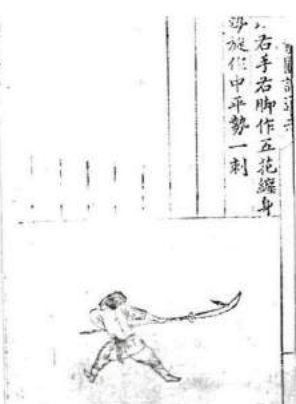 右手右脚作五花纏身
旋作中平勢一刺